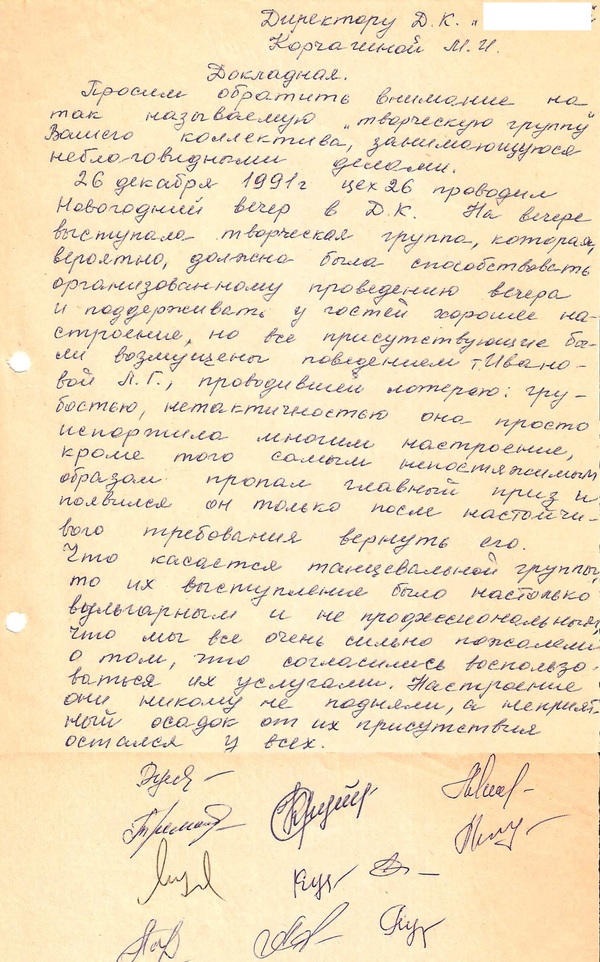 Директору Д.К. "
Корчагиной М.И.
Докладная.
Просим обратить внимание на
так называемую "творческую группу"
Вашего коллектива, занимающуюся
неблаговидными делами.
26 декабря 1991г цех 26 проводил
Новогодний вечер в Д.К. На вечере
выступала творческая группа, которая,
вероятно, должна была способствовать
организованному проведению вечера
и поддерживать у гостей хорошее на-
строение, но все присутствующие бы-
ли возмущены поведением т Ивано-
вой Л.Г., проводившей лотерею: гру-
бостью, нетактичностью она просто
испоржила многим настроение,
кроме того самым непостяжимым
образом пропал главный приз и
появился он только после настойчи-
вого требования вернуть его.
Что касается танцевальной группы,
то их выступление было настолько
вульгарным и не профессиональным,
что мы все очень сильно пожалели
о том, что согласились воспользо-
ваться их услугами. Настроение
они никому не подняли, а неприят-
ный осадок от их присутствия
остался у всех.